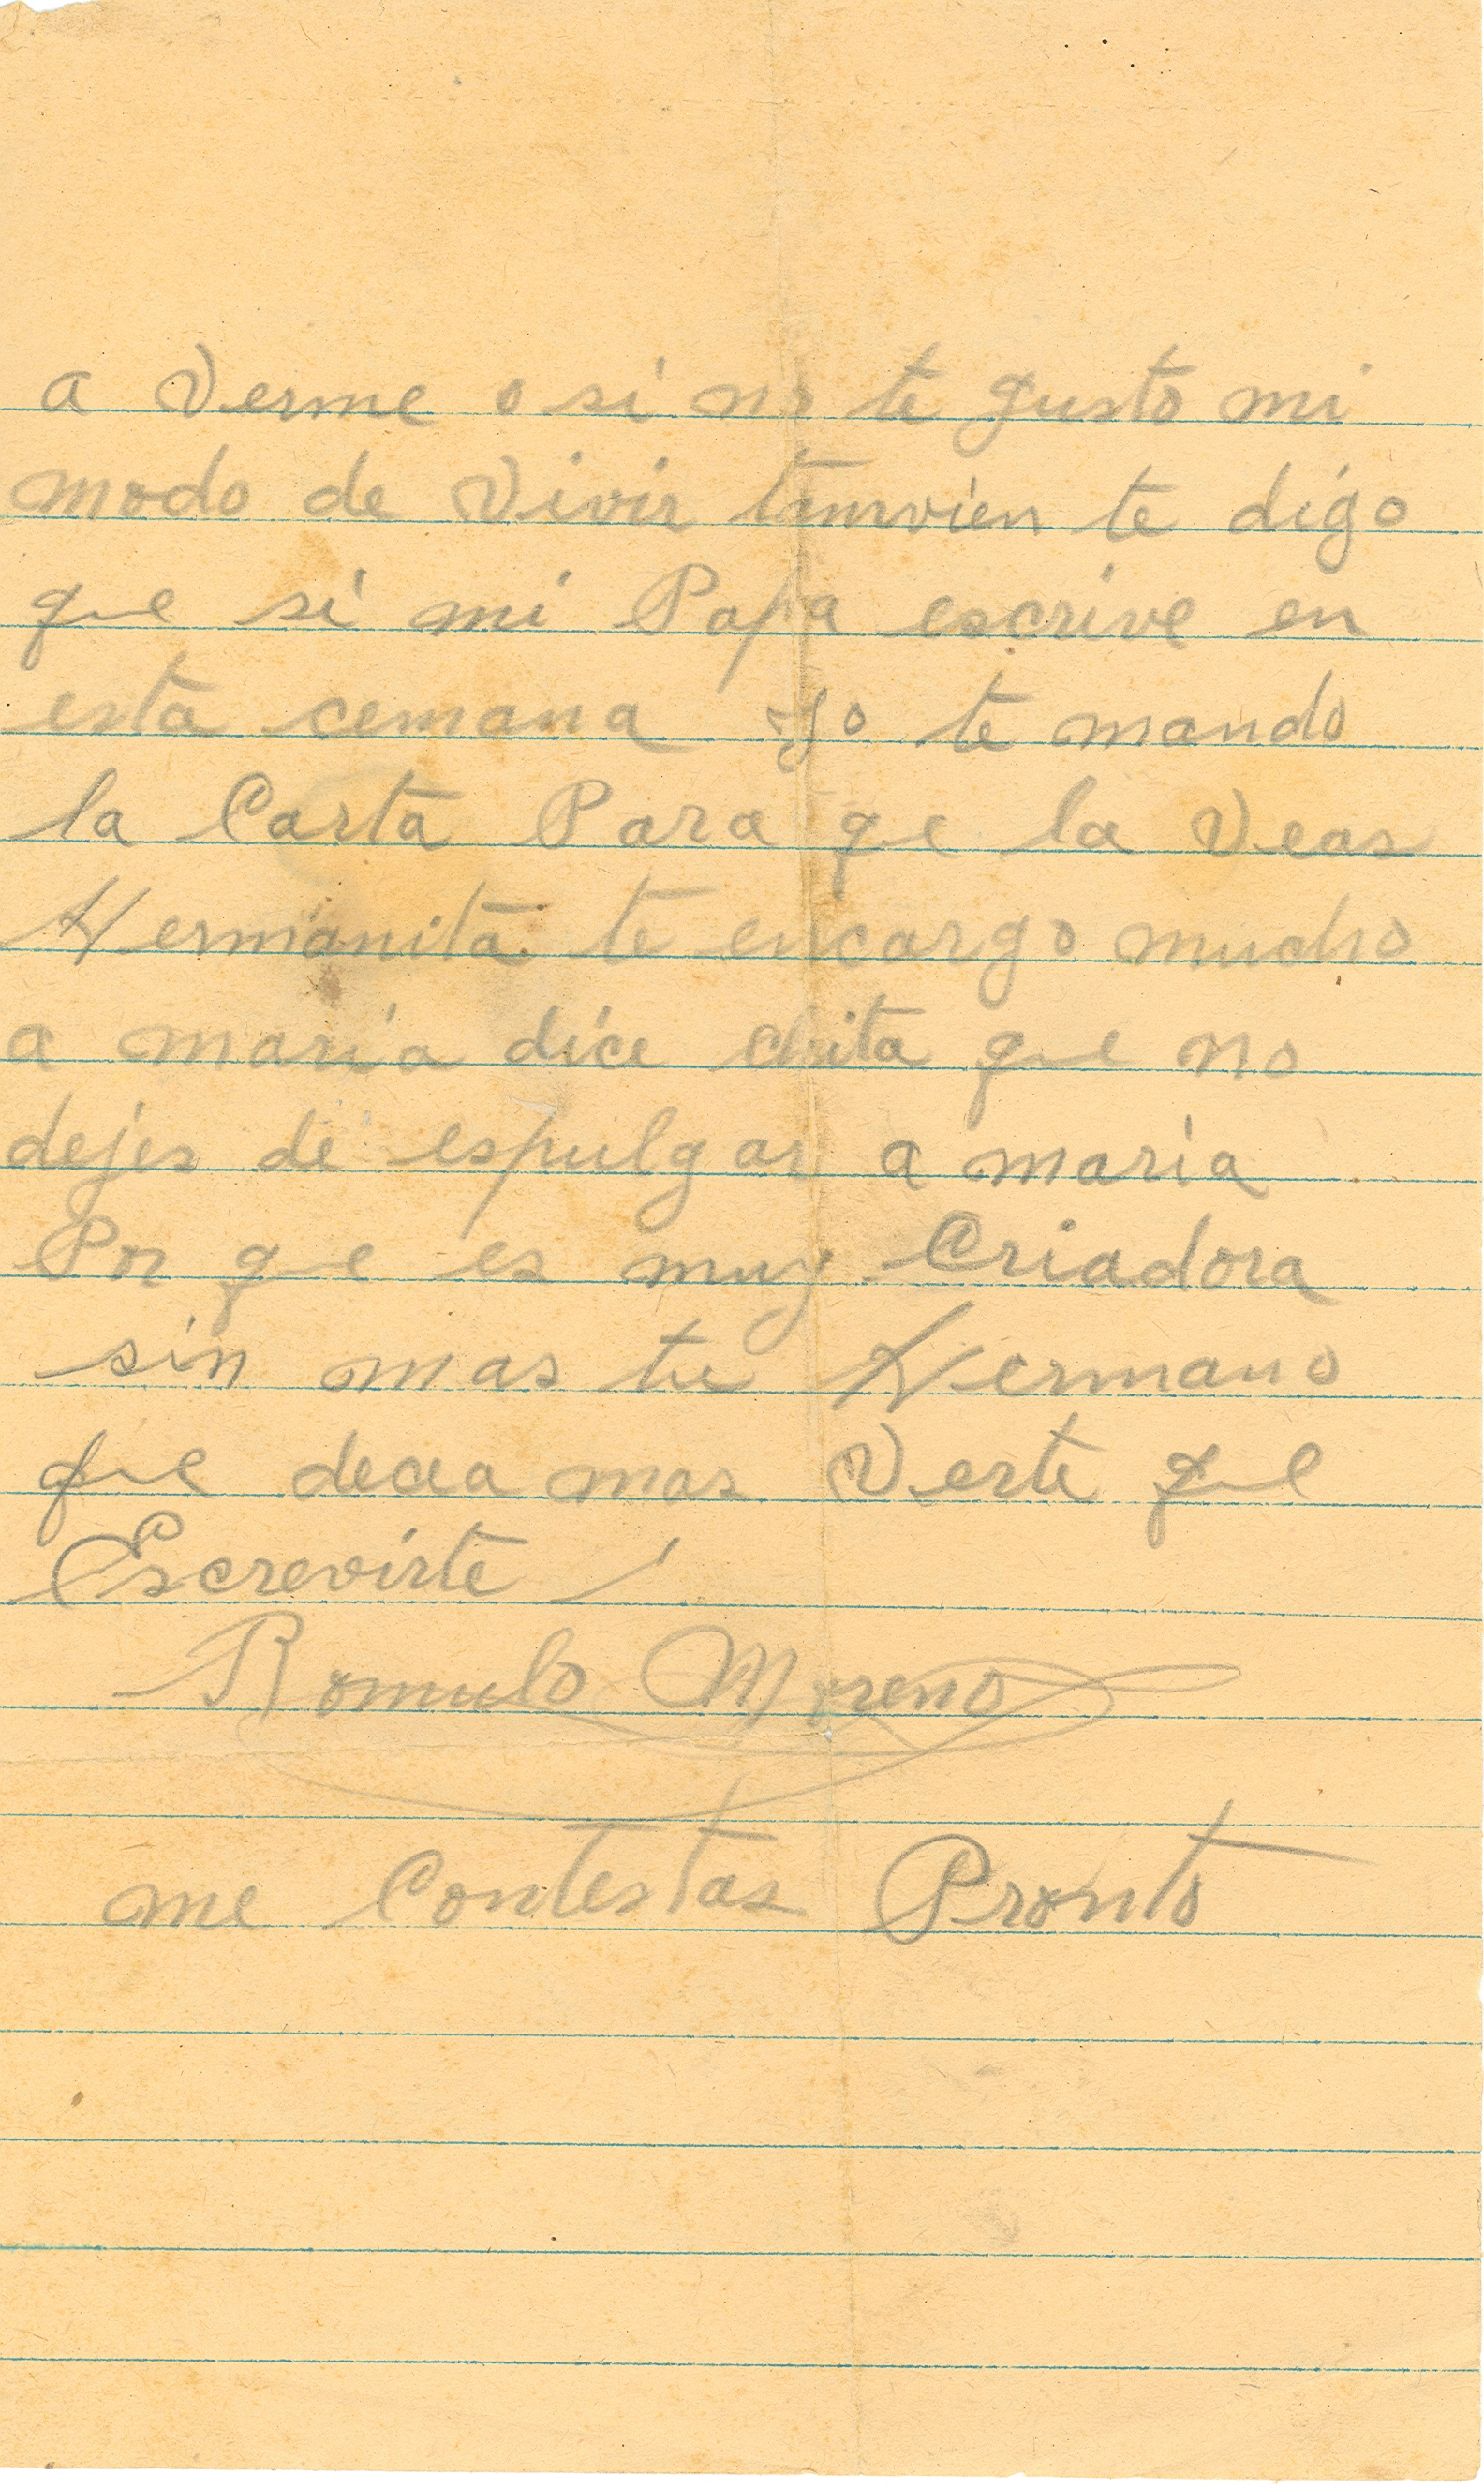 a Verme o si no te gusto mi
modo de Vivir tamvien te digo
que si mi Papa escrive en
esta cemana yo te mando
la Carta Para qe la Veas
Hermanita te encargo mucho
a maria dice chita que no
dejes de espulgar a maria
Por qe es muy Criadora
sin mas tu Hermano
que decea mas Verte que
Escrevirte
Romulo Moreno
me Contestas Pronto